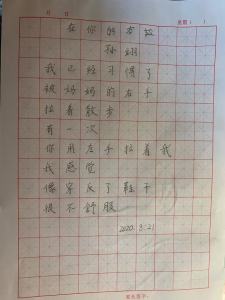 月 日
星期（ ）
在你的左边
孙娴
我已经习惯了
被妈妈的右手
拉着散步
有一次
你用左手拉着我
我感觉
像穿反了鞋子
很不舒服
2020.3.21
家长签字: